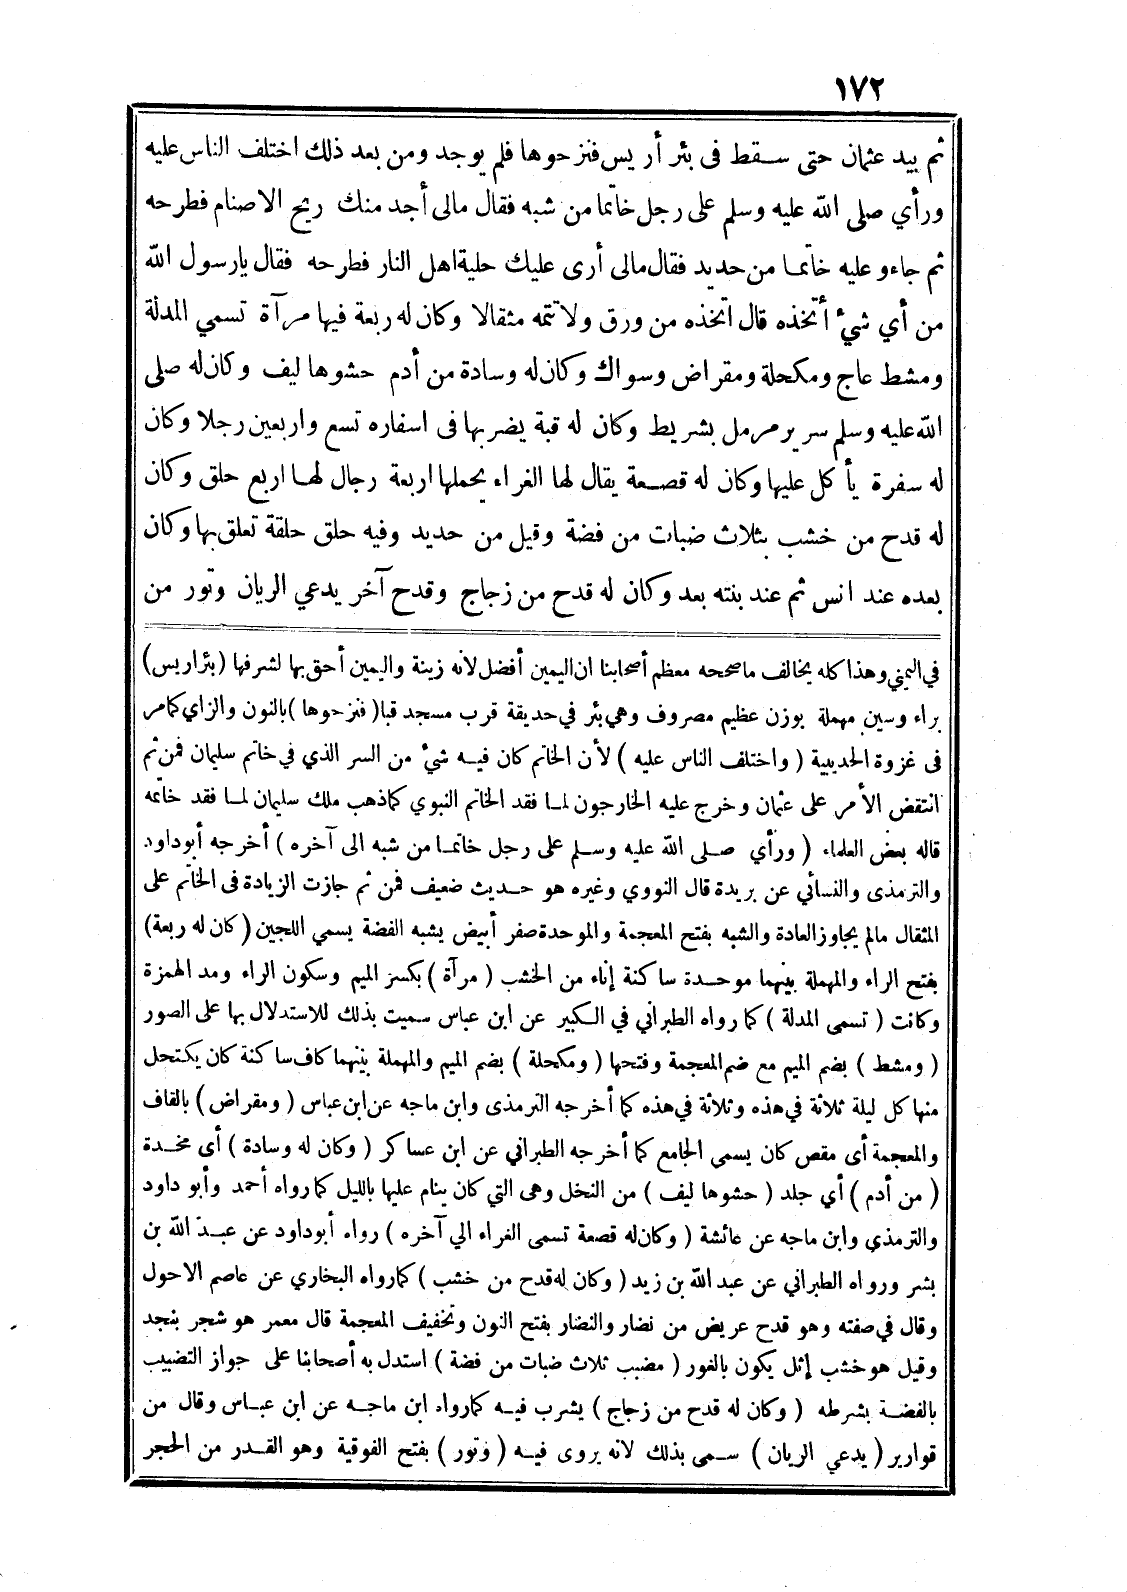 ١٧٢
ثم بيد عثمان حتى سقط فى بئر أريس فنزحوها فلم يوجد ومن بعد ذلك اختلف الناس عليه
ورأي صلى الله عليه وسلم على رجل خاتما من شبه فقال مالى أجد منك ريح الاصنام فطرحه
ثم جاء وعليه خاتما من حديد فقال مالى أرى عليك حلية اهل النار فطرحه فقال يارسول الله
من أي شئ أتخذه قال اتخذه من ورق ولا تتمه مثقالا وكان له ربعة فيها مرآة تسمي المدلة
ومشط عاج ومكحلة ومقراض وسواك وكان له وسادة من أدم حشوها ليف وكان له صلى
الله عليه وسلم سرير مرمل بشريط وكان له قبة يضربها فى اسفاره تسع واربعين رجلا وكان
له سفرة يأكل عليها وكان له قصعة يقال لها الغراء يحملها اربعة رجال لها اربع حلق وكان
له قدح من خشب بثلاث ضبات من فضة وقيل من حديد وفيه حلق حلقة تعلق بها وكان
بعده عند انس ثم عند بنته بعد وكان له قدح من زجاج وقدح آخر يدعي الريان وتور من
في اليمني وهذا كله يخالف ما صححه معظم أصحابنا ان اليمين أفضل لانه زينة واليمين أحق بها لشرفها (بئر اريس)
براء وسين مهملة بوزن عظيم مصروف وهي بئر في حديقة قرب مسجد قبا (فنزحوها) بالنون والزاي كما مر
فى غزوة الحديبية (واختلف الناس عليه) لأن الخاتم كان فيه شئ من السر الذي في خاتم سليمان فمن ثم
انتقض الأمر على عثمان وخرج عليه الخارجون لما فقد الخاتم النبوي كما ذهب ملك سليمان لما فقد خاتمه
قاله بعض العلماء (ورأي صلى الله عليه وسلم على رجل خاتما من شبه الى آخره) أخرجه أبو داود
والترمذى والنسائي عن بريدة قال النووي وغيره هو حديث ضعيف فمن ثم جازت الزيادة فى الخاتم على
المثقال مالم يجاوز العادة والشبه بفتح المعجمة والموحدة صفر أبيض يشبه الفضة يسمي اللجين (كان له ربعة)
بفتح الراء والمهملة بينهما موحدة ساكنة إناء من الخشب (مرآة) بكسر الميم وسكون الراء ومد الهمزة
وكانت (تسمى المدلة) كما رواه الطبراني في الكبير عن ابن عباس سميت بذلك للاستدلال بها على الصور
(ومشط) بضم الميم مع ضم المعجمة وفتحها (ومكحلة) بضم الميم والمهملة بينهما كاف ساكنة كان يكتحل
منها كل ليلة ثلاثة في هذه وثلاثة في هذه كما أخرجه الترمذى وابن ماجه عن ابن عباس (ومقراض) بالقاف
والمعجمة أى مقص كان يسمى الجامع كما أخرجه الطبراني عن ابن عساكر (وكان له وسادة) أى مخدة
(من أدم) أي جلد (حشوها ليف) من النخل وهى التي كان ينام عليها بالليل كما رواه أحمد وأبو داود
والترمذي وابن ماجه عن عائشة (وكان له قصعة تسمى الغراء الي آخره) رواه أبو داود عن عبد الله بن
بشر ورواه الطبراني عن عبد الله بن زيد (وكان له قدح من خشب) كما رواه البخاري عن عاصم الاحول
وقال في صفته وهو قدح عريض من نضار والنضار بفتح النون وتخفيف المعجمة قال معمر هو شجر بنجد
وقيل هو خشب إثل يكون بالغور (مضبب ثلاث ضبات من فضة) استدل به أصحابنا على جواز التضبيب
بالفضة بشرطه (وكان له قدح من زجاج) يشرب فيه كما رواه ابن ماجه عن ابن عباس وقال من
قوارير (يدعي الريان) سمى بذلك لانه يروى فيه (وتور) بفتح الفوقية وهو القدر من الحجر